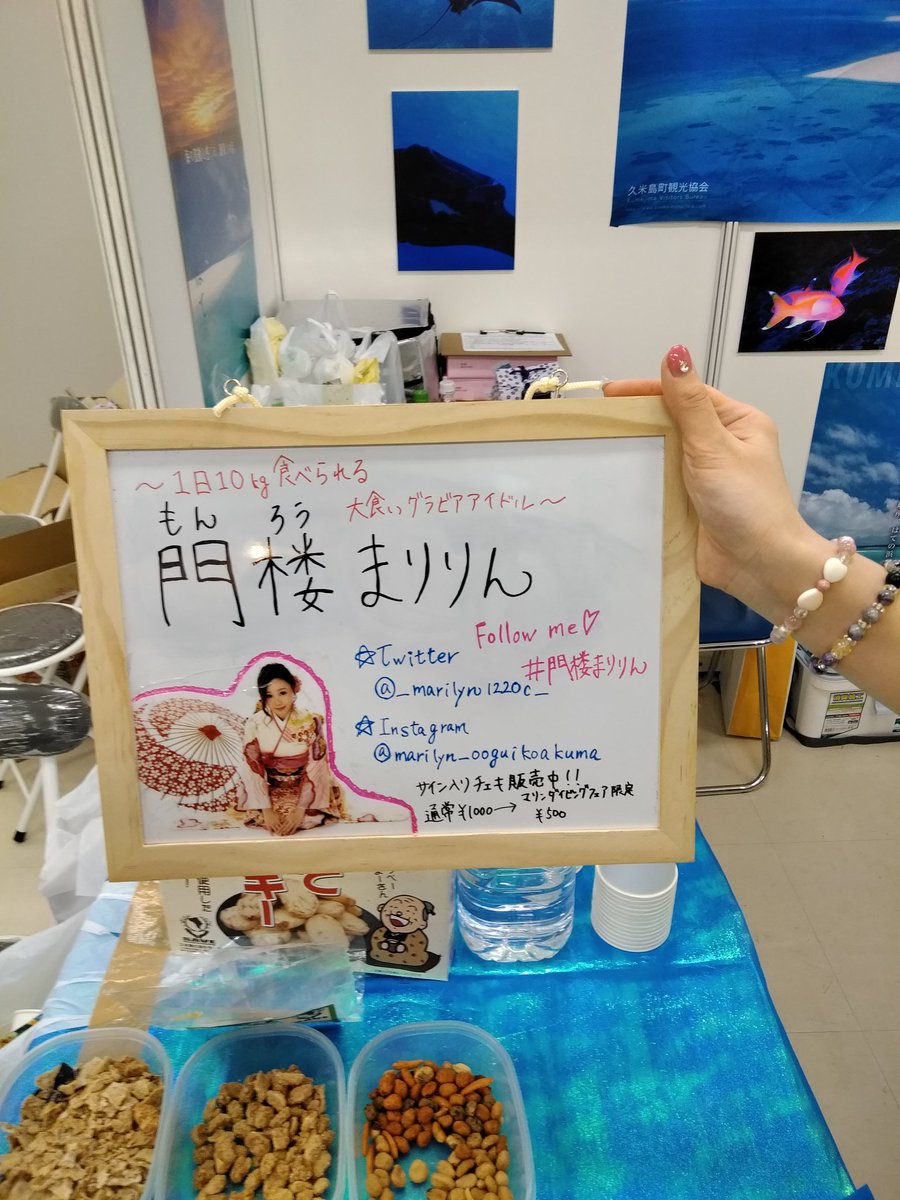 久米島町観光協会
Kumejima Visitors Bureau
KUM
～1日10kg食べられる
大食いグラビアアイドル～
もん ろう
門楼 まりりん
Follow me♡
#門楼まりりん
☆Twitter
@_marilyn1220c_
☆Instagram
@marilyn_ooguikoakuma
サイン入りチェキ販売中!!
通常¥1000→マリンダイビングフェア限定
¥500